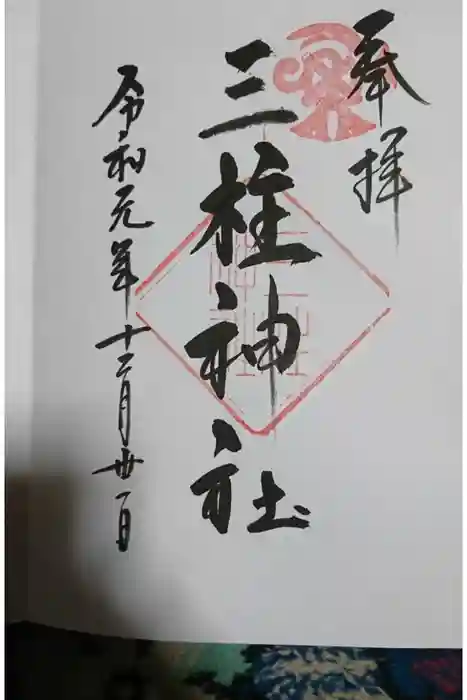 奉拝
三柱神社
令和元年十二月丗一日